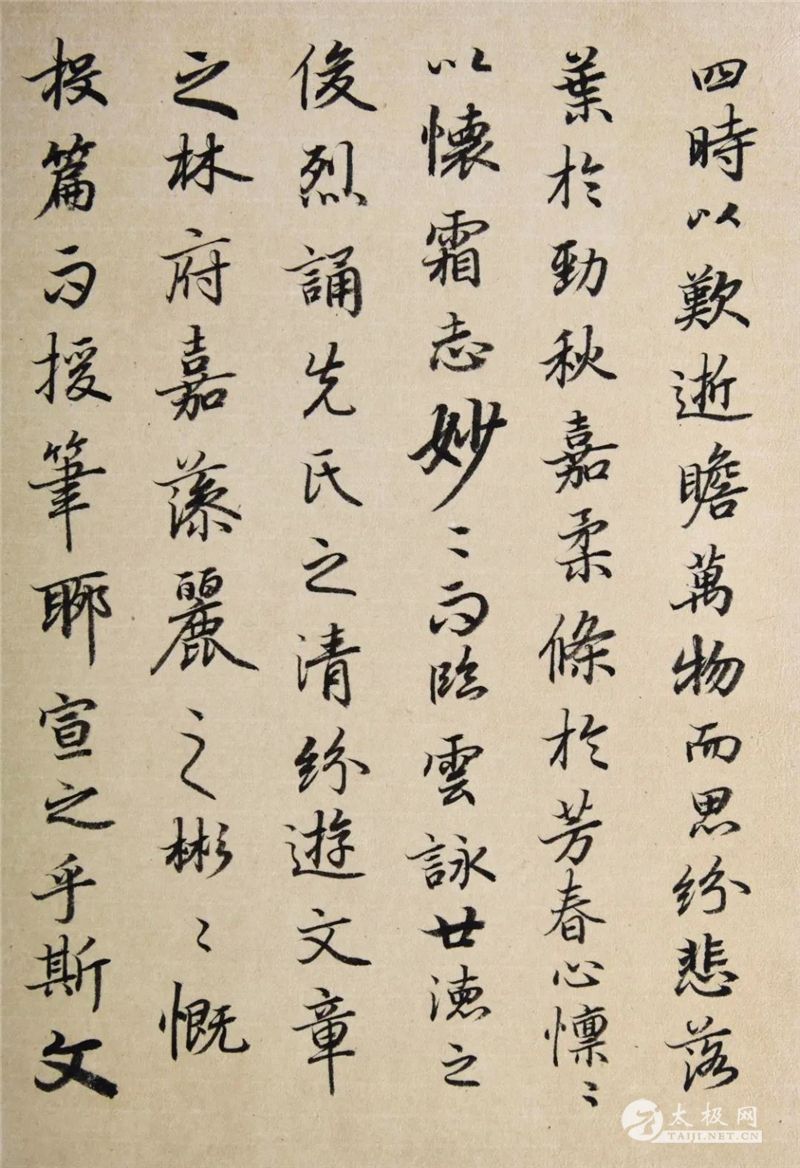 四時以歎逝瞻萬物而思紛悲落
葉於勁秋嘉柔條於芳春心懍〻
以懷霜志妙〻而臨雲詠廿德之
俊烈誦先氏之清紛遊文章
之林府嘉藻麗之彬〻慨
投篇而授筆聊宣之乎斯文
太极网
TAIJI.NET.CN